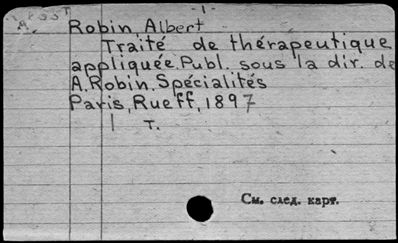 -1-
A.
Robin, Albert
Traité de thérapeutique
appliquée. Publ. sous la dir. de
A. Robin. Spécialités
Paris, Rueff, 1897
| т.
См. след. карт.